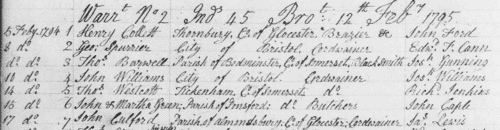 Warrt No 2 Ind 45 Brot 12th Feby 1795
5 Feby 1794 1 Henry Collett Thornbury, C. of Glocester Brazier &c John Ford
8 do 2 Geo. Spurrier City of Bristol Cordwainer Edwd F. Cann
do do 3 Thos Barwell Parish of Bedminster, C. of Somerset, Black Smith Jos Gunning
10 do 4 John Williams City of Bristol Cordwainer Jos Williams
14 do 5 Thos Westcott Tickenham, C. of Somerset do Richd Jenkins
16 do 6 John & Martha Green, Parish of do Butchers John Caple
17 do 7 John Parish of almondsbury, C. of Glocester, Cordwainer Jas Lewis